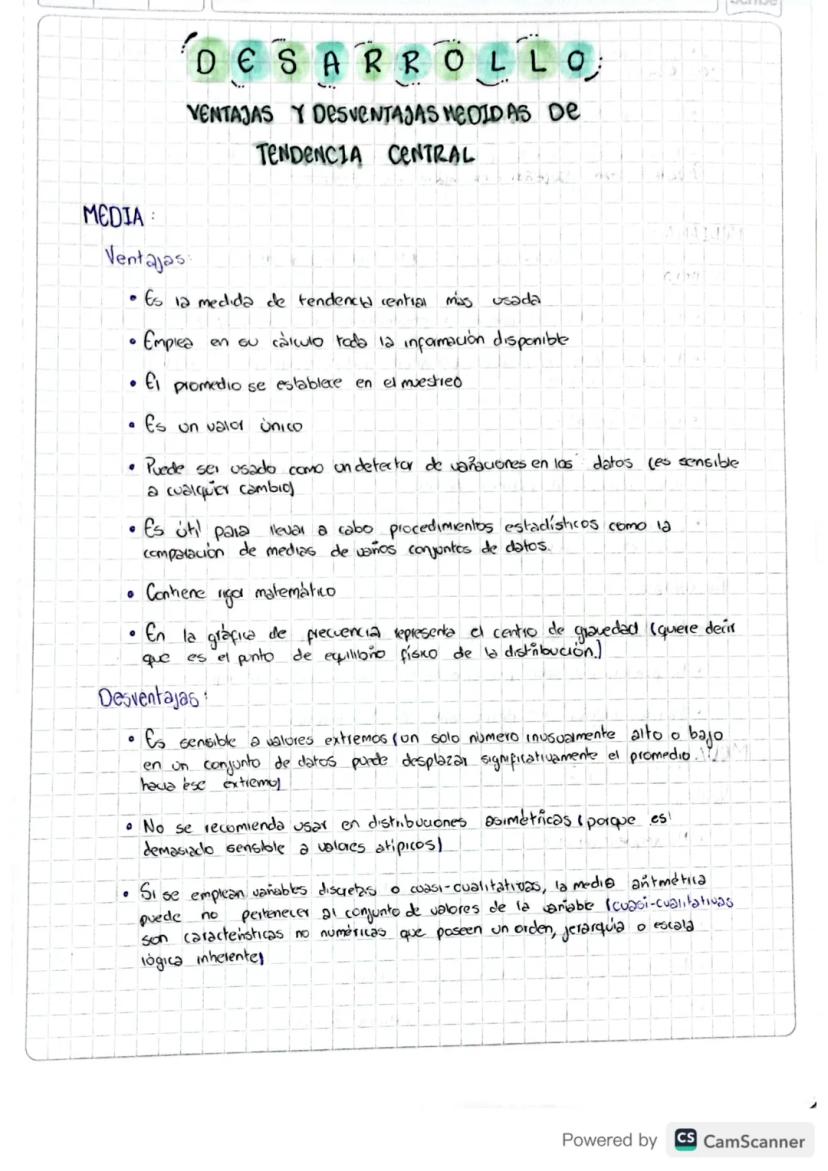 DESARROLLO
VENTAJAS Y DESVENTAJAS MEDIDAS DE
TENDENCIA CENTRAL
MEDIA:
Ventajas:
• Es la medida de tendencia central más usada
• Emplea en su cálculo toda la información disponible
• El promedio se establece en el muestreo
• Es un valor único
• Puede ser usado como un detector de variaciones en los datos (es sensible
a cualquier cambio)
• Es útil para llevar a cabo procedimientos estadísticos como la
comparación de medias de varios conjuntos de datos.
• Contiene rigor matemático
• En la gráfica de frecuencia representa el centro de gravedad (quiere decir
que es el punto de equilibrio físico de la distribución.)
Desventajas:
• Es sensible a valores extremos (un solo número inusualmente alto o bajo
en un conjunto de datos puede desplazar significativamente el promedio.
hacia ese extremo)
• No se recomienda usar en distribuciones asimétricas (porque es
demasiado sensible a valores atípicos)
• Si se emplean variables discretas o cuasi-cualitativas, la media aritmética
puede no pertenecer al conjunto de valores de la variable (cuasi-cualitativas
son características no numéricas que poseen un orden, jerarquía o escala
lógica inherente)
Powered by CS CamScanner